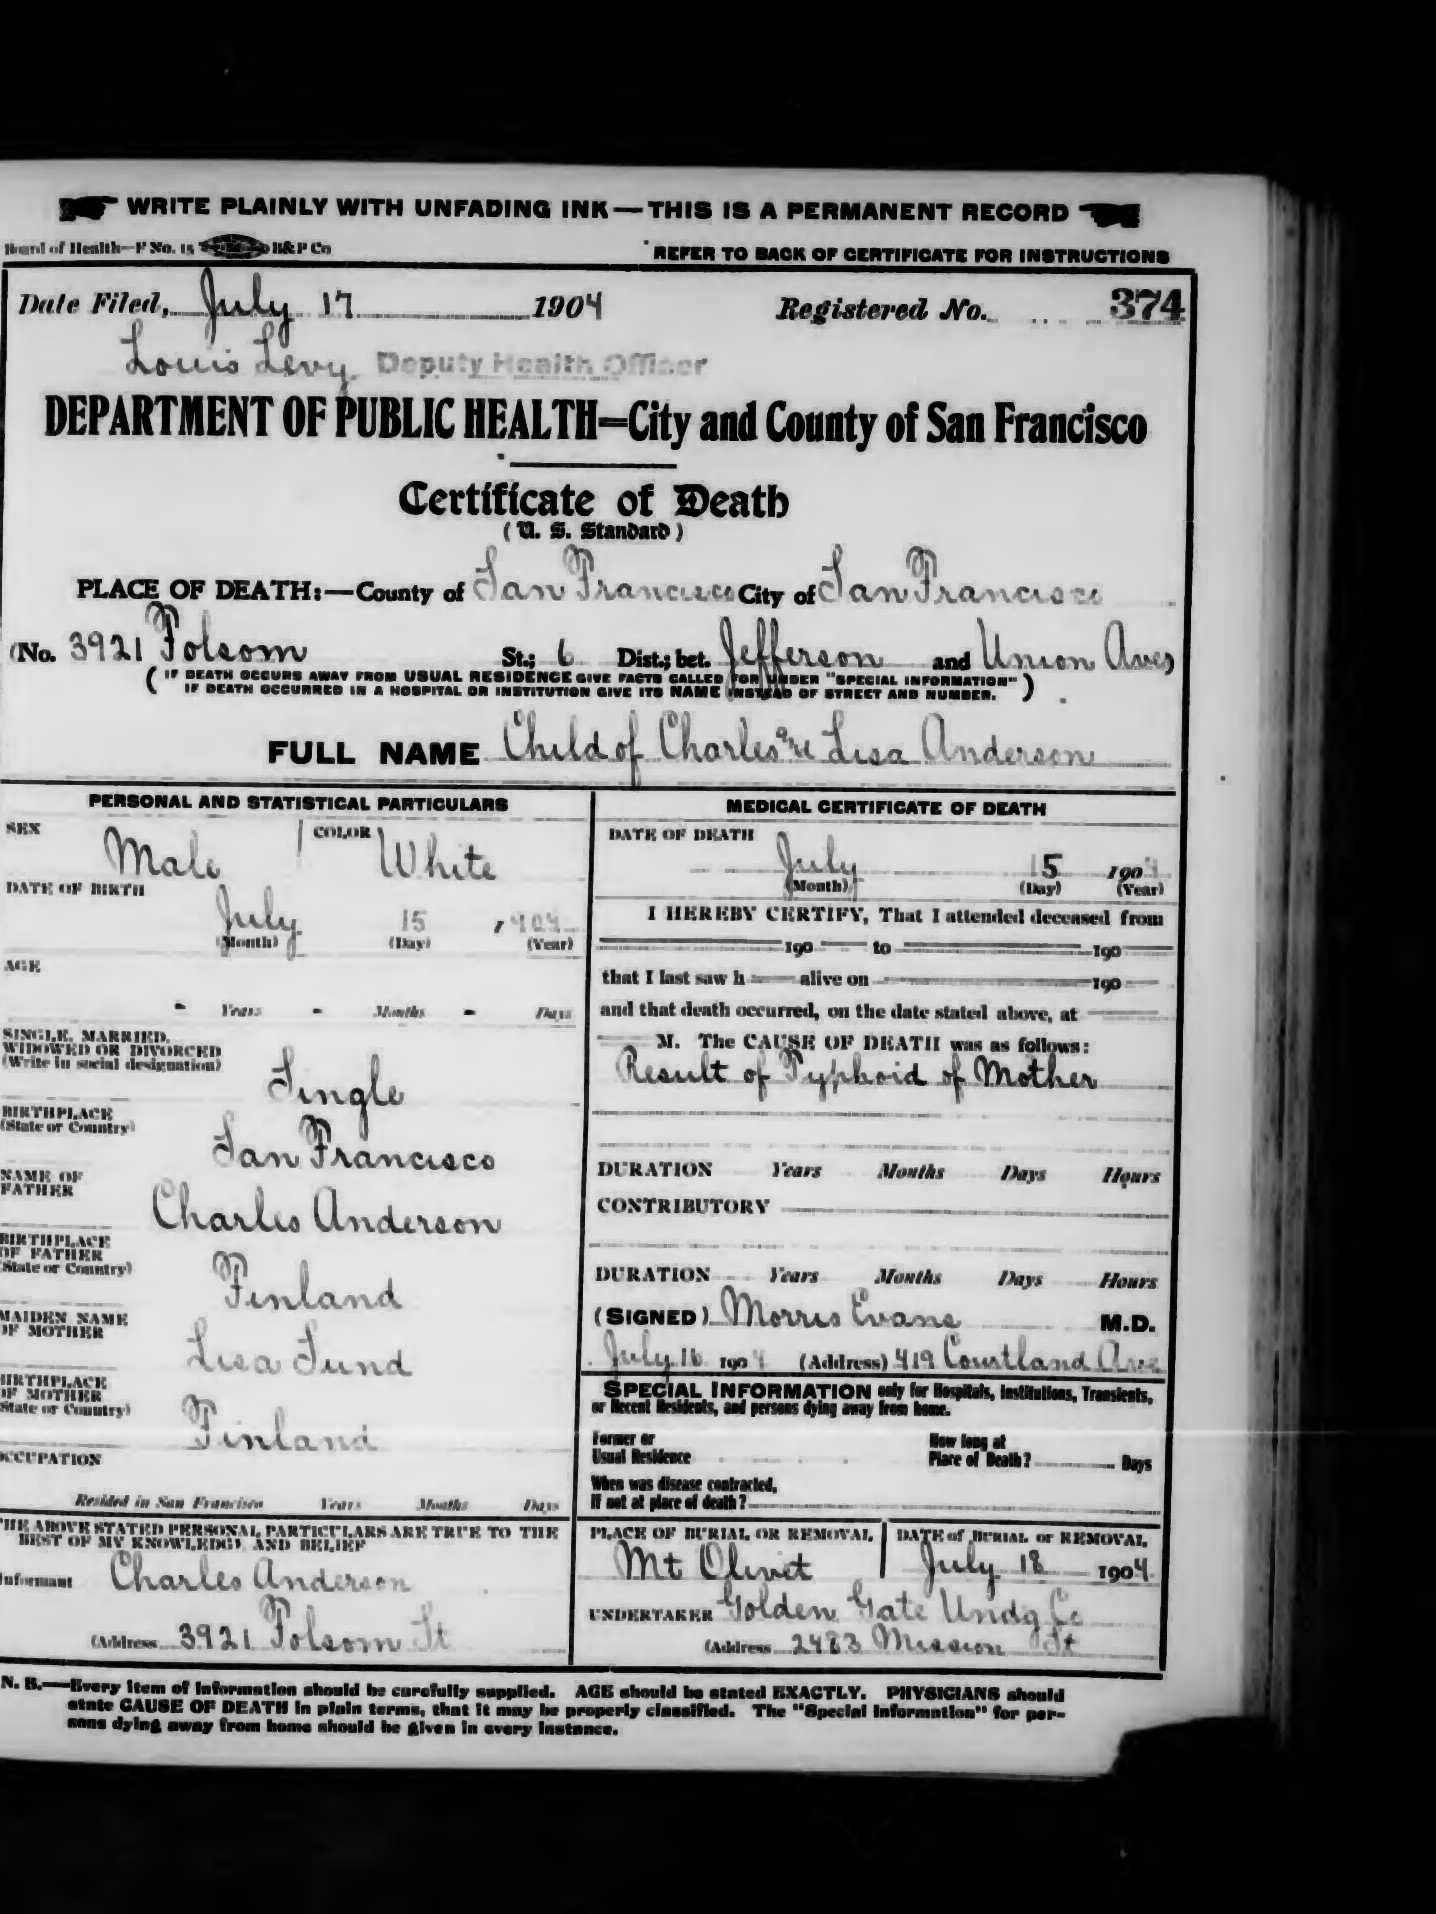 WRITE PLAINLY WITH UNFADING INK — THIS IS A PERMANENT RECORD
Board of Health—F No. 15 B&P Co
REFER TO BACK OF CERTIFICATE FOR INSTRUCTIONS
Date Filed, July 17 1904 Registered No. 374
Louis Levy Deputy Health Officer
DEPARTMENT OF PUBLIC HEALTH=City and County of San Francisco
Certificate of Death
(U. S. Standard)
PLACE OF DEATH:—County of San Francisco City of San Francisco
(No. 3921 Folsom St.; 6 Dist.; bet. Jefferson and Union Aves
( IF DEATH OCCURS AWAY FROM USUAL RESIDENCE GIVE FACTS CALLED FOR UNDER "SPECIAL INFORMATION"
IF DEATH OCCURRED IN A HOSPITAL OR INSTITUTION GIVE ITS NAME INSTEAD OF STREET AND NUMBER. )
FULL NAME Child of Charles and Lisa Anderson
PERSONAL AND STATISTICAL PARTICULARS
SEX Male COLOR White
DATE OF BIRTH
July 15 , 1904
(Month) (Day) (Year)
AGE
- Years - Months - Days
SINGLE, MARRIED,
WIDOWED OR DIVORCED
(Write in social designation)
Single
BIRTHPLACE
(State or Country)
San Francisco
NAME OF
FATHER
Charles Anderson
BIRTHPLACE
OF FATHER
(State or Country)
Finland
MAIDEN NAME
OF MOTHER
Lisa Sund
BIRTHPLACE
OF MOTHER
(State or Country)
Finland
OCCUPATION
Resided in San Francisco Years Months Days
THE ABOVE STATED PERSONAL PARTICULARS ARE TRUE TO THE
BEST OF MY KNOWLEDGE AND BELIEF
Informant Charles Anderson
(Address 3921 Folsom St
MEDICAL CERTIFICATE OF DEATH
DATE OF DEATH
July 15 1904
(Month) (Day) (Year)
I HEREBY CERTIFY, That I attended deceased from
190 to 190
that I last saw h alive on 190
and that death occurred, on the date stated above, at
M. The CAUSE OF DEATH was as follows:
Result of Typhoid of Mother
DURATION Years Months Days Hours
CONTRIBUTORY
DURATION Years Months Days Hours
(SIGNED) Morris Evans M.D.
July 16 1904 (Address) 419 Courtland Ave
SPECIAL INFORMATION only for Hospitals, Institutions, Transients,
or Recent Residents, and persons dying away from home.
Former or
Usual Residence
How long at
Place of Death? Days
When was disease contracted,
If not at place of death?
PLACE OF BURIAL OR REMOVAL DATE of BURIAL or REMOVAL
Mt Olivet July 18 1904
UNDERTAKER Golden Gate Undg Co
(Address 2483 Mission St
N. B.—Every item of information should be carefully supplied. AGE should be stated EXACTLY. PHYSICIANS should
state CAUSE OF DEATH in plain terms, that it may be properly classified. The "Special Information" for per-
sons dying away from home should be given in every instance.